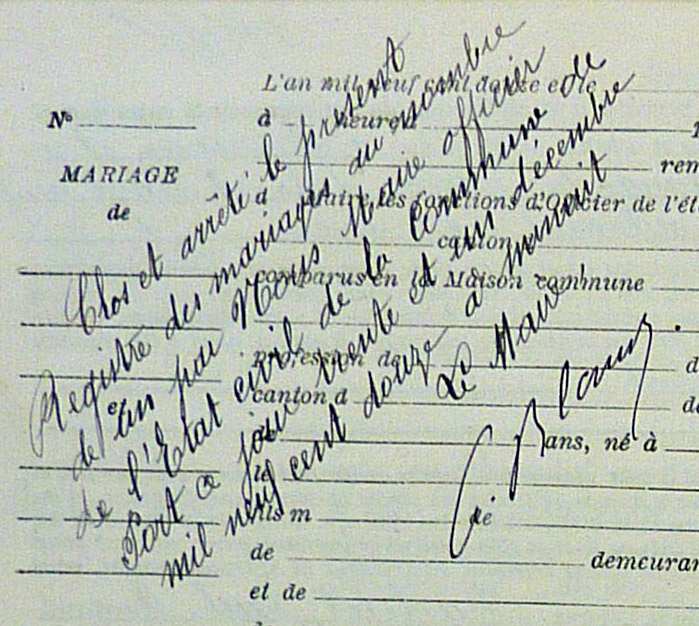 L'an mil neuf cent douze et le
N°
à heure
MARIAGE
de
rem
d Maire, les fonctions d'Officier de l'ét
canton
comparus en la Maison commune
profession de
d
et
canton d
de
ans, né à
le
fils m
de
demeuran
et de
Clos et arrêté le présent
Registre des mariages au nombre
de un par Nous Maire officier
de l'Etat civil de la commune de
Port ce jour trente et un décembre
mil neuf cent douze à minuit
Le Maire